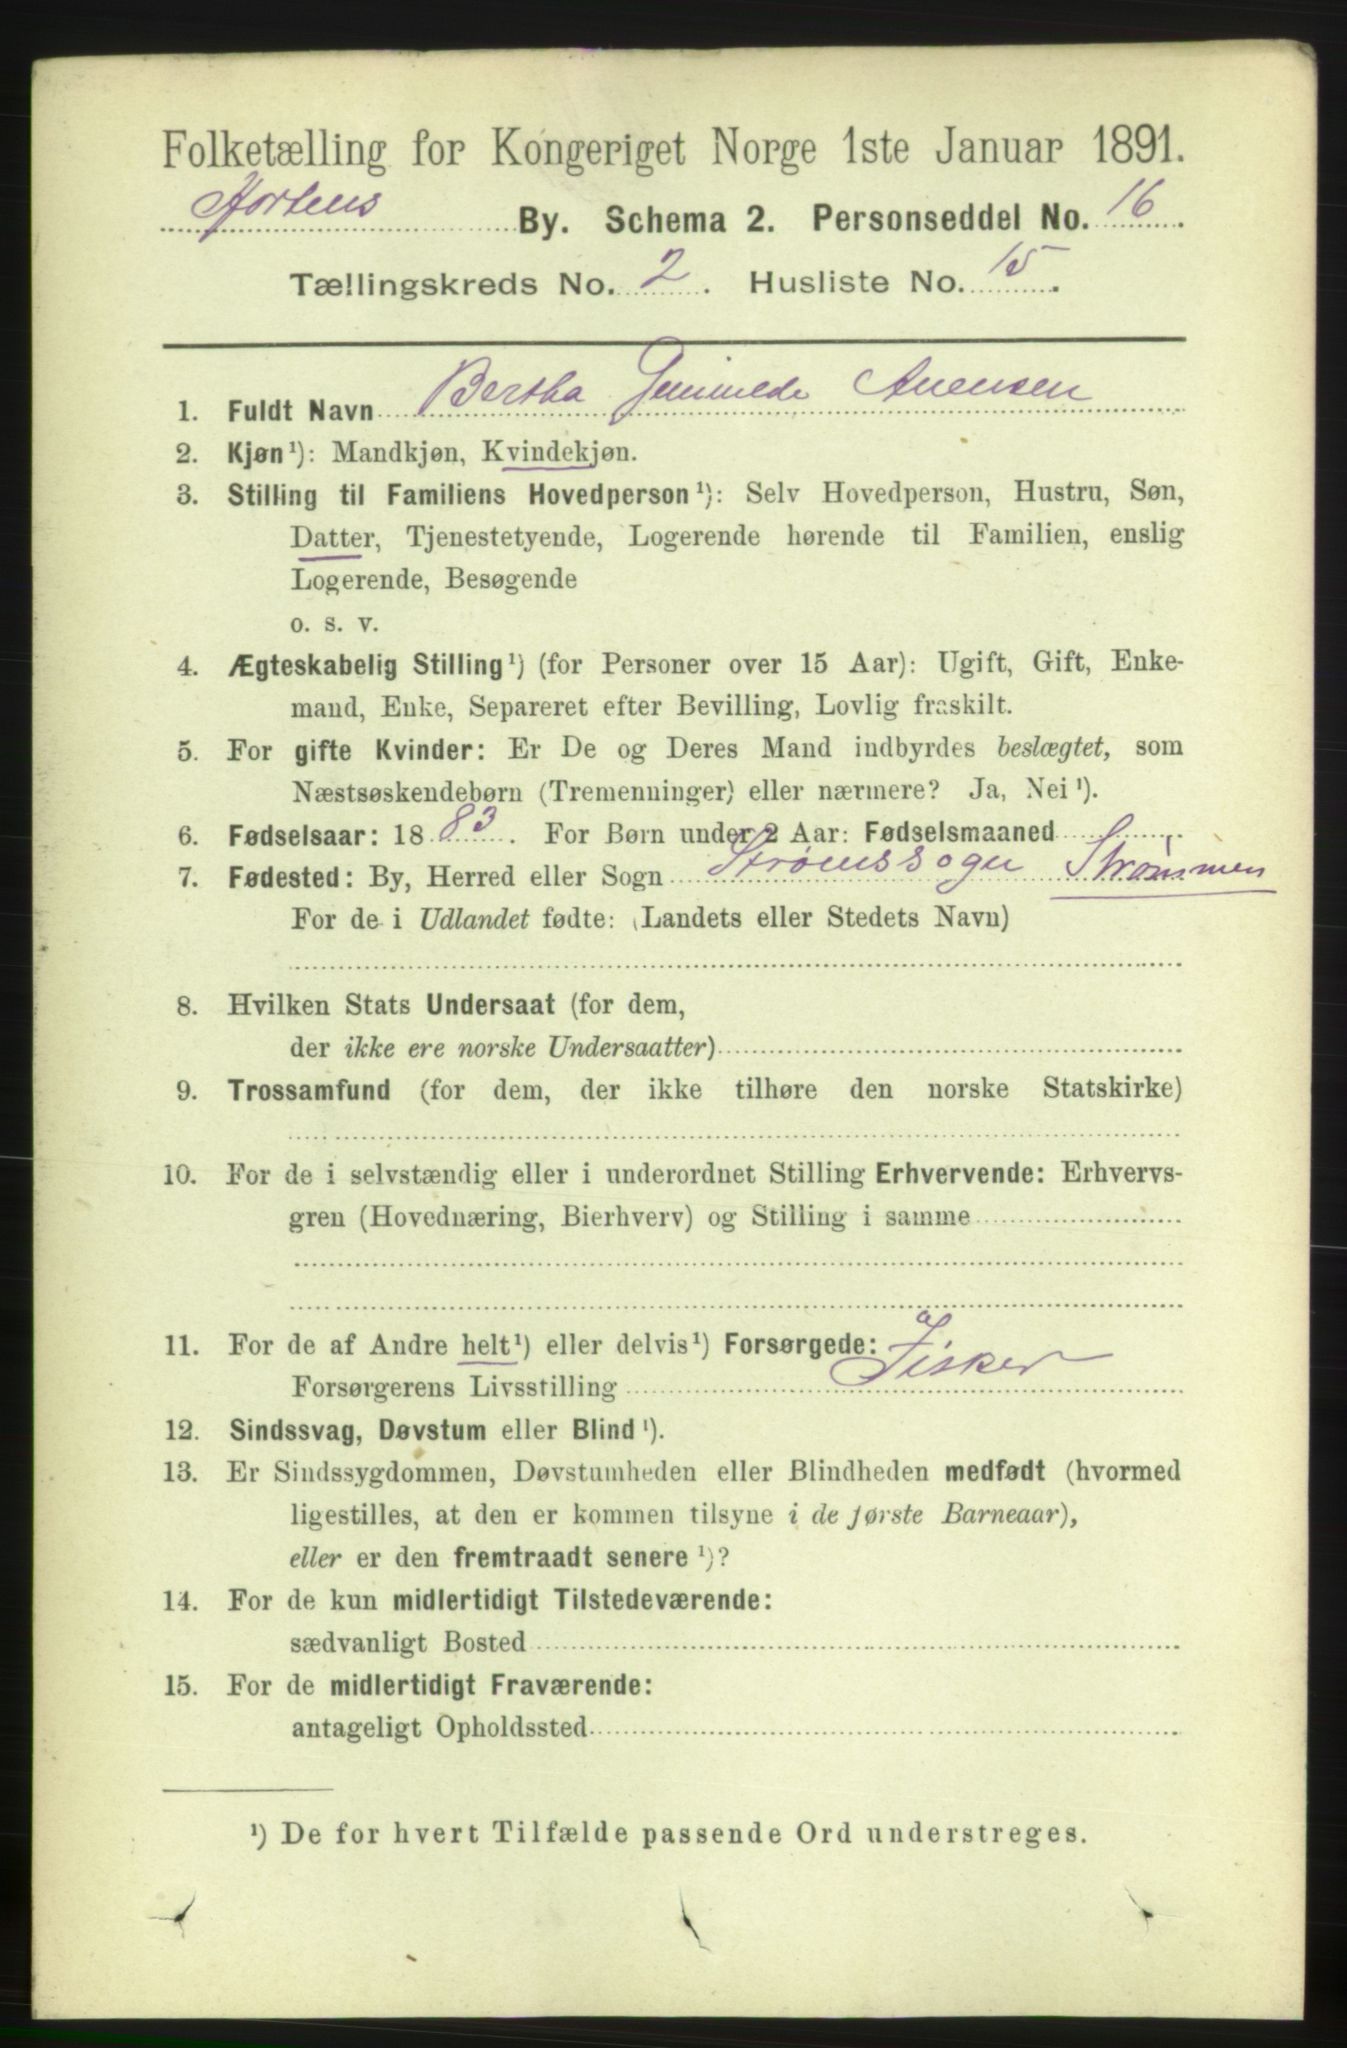 Folketælling for Kongeriget Norge 1ste Januar 1891.
Hortens By. Schema 2. Personseddel No. 16
Tællingskreds No. 2. Husliste No. 15.
1. Fuldt Navn Bertha
2. Kjøn¹): Mandkjøn, Kvindekjøn.
3. Stilling til Familiens Hovedperson¹): Selv Hovedperson, Hustru, Søn,
Datter, Tjenestetyende, Logerende hørende til Familien, enslig
Logerende, Besøgende
o. s. v.
4. Ægteskabelig Stilling¹) (for Personer over 15 Aar): Ugift, Gift, Enke-
mand, Enke, Separeret efter Bevilling, Lovlig fraskilt.
5. For gifte Kvinder: Er De og Deres Mand indbyrdes beslægtet, som
Næstsøskendebørn (Tremenninger) eller nærmere? Ja, Nei¹).
6. Fødselsaar: 1883. For Børn under 2 Aar: Fødselsmaaned
7. Fødested: By, Herred eller Sogn Strømssogn Strømmen
For de i Udlandet fødte: (Landets eller Stedets Navn)
8. Hvilken Stats Undersaat (for dem,
der ikke ere norske Undersaatter)
9. Trossamfund (for dem, der ikke tilhøre den norske Statskirke)
10. For de i selvstændig eller i underordnet Stilling Erhvervende: Erhvervs-
gren (Hovednæring, Bierhverv) og Stilling i samme
11. For de af Andre helt¹) eller delvis¹) Forsørgede:
Forsørgerens Livsstilling Fisker
12. Sindssvag, Døvstum eller Blind¹).
13. Er Sindssygdommen, Døvstumheden eller Blindheden medfødt (hvormed
ligestilles, at den er kommen tilsyne i de første Barneaar),
eller er den fremtraadt senere¹)?
14. For de kun midlertidigt Tilstedeværende:
sædvanligt Bosted
15. For de midlertidigt Fraværende:
antageligt Opholdssted
¹) De for hvert Tilfælde passende Ord understreges.